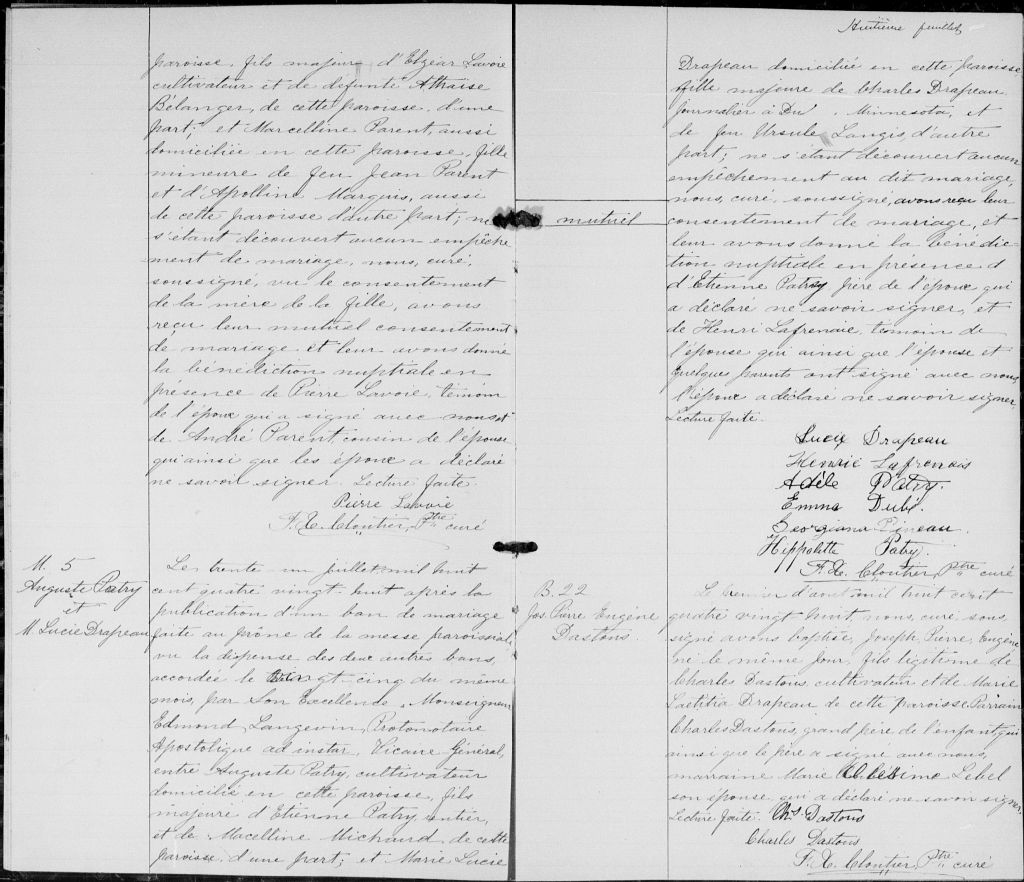 paroisse, fils majeur d'Elzéar Lavoie
cultivateur et de défunte Athaïse
Bélanger, de cette paroisse, d'une
part; et Marcelline Parent, aussi
domiciliée en cette paroisse, fille
mineure de feu Jean Parent
et d'Apolline Marquis, aussi
de cette paroisse d'autre part; ne
s'étant découvert aucun empêche
ment de mariage, nous, curé,
soussigné, vu le consentement
de la mère de la fille, avons
reçu leur mutuel consentement
de mariage et leur avons donné
la bénédiction nuptiale en
présence de Pierre Lavoie, témoin
de l'époux qui a signé avec nous et
de André Parent cousin de l'épouse
qui ainsi que les époux a déclaré
ne savoir signer. Lecture faite.
Pierre Lavoie
F. X. Cloutier, Ptre curé
M. 5
Auguste Patry
et
M. Lucie Drapeau
Les trente un juillet mil huit
cent quatre vingt huit après la
publication d'un ban de mariage
faite au prône de la messe paroissiale
vu la dispense des deux autres bans,
accordée le vingt cinq du même
mois, par Son Excellence, Monseigneur
Edmond Langevin, Protonotaire
Apostolique ad instar, Vicaire Général,
entre Auguste Patry, cultivateur
domicilié en cette paroisse, fils
majeure d'Etienne Patry, rentier,
et de Macelline Michaud de cette
paroisse, d'une part; et Marie Lucie
Huitième feuillet
Drapeau domiciliée en cette paroisse
fille majeure de Charles Drapeau
journalier à Du , Minnesota, et
de feu Ursule Langis, d'autre
part; ne s'étant découvert aucun
empêchement au dit mariage,
nous, curé, soussigné, avons reçu leur
mutuel
consentement de mariage, et
leur avons donné la bénédic
tion nuptiale en présence d
d'Etienne Patry père de l'époux qui
a déclaré ne savoir signer, et
de Henri Lafrenaie, témoin de
l'épouse qui ainsi que l'épouse et
quelques parents ont signé avec nous,
l'époux a déclaré ne savoir signer,
Lecture faite.
Lucie Drapeau
Henrie Lafrenais
Adèle Patry.
Emma Dubé.
Georgiana Pineau.
Hippolitte Patry.
F. X. Cloutier, Ptre curé
B. 22
Jos. Pierre Eugène
Dastous.
Le premier d'août mil huit cent
quatre vingt huit, nous, curé, sous
signé avons baptisé, Joseph, Pierre, Eugène
né le même jour, fils légitime de
Charles Dastous, cultivateur et de Marie
Laetitia Drapeau de cette paroisse. Parrain
Charles Dastous, grand père de l'enfant qui
ainsi que le père a signé avec nous,
marraine Marie Lebel
son épouse, qui a déclaré ne savoir signer,
Lecture faite. Chs. Dastous
Charles Dastous
F. X. Cloutier, Ptre curé